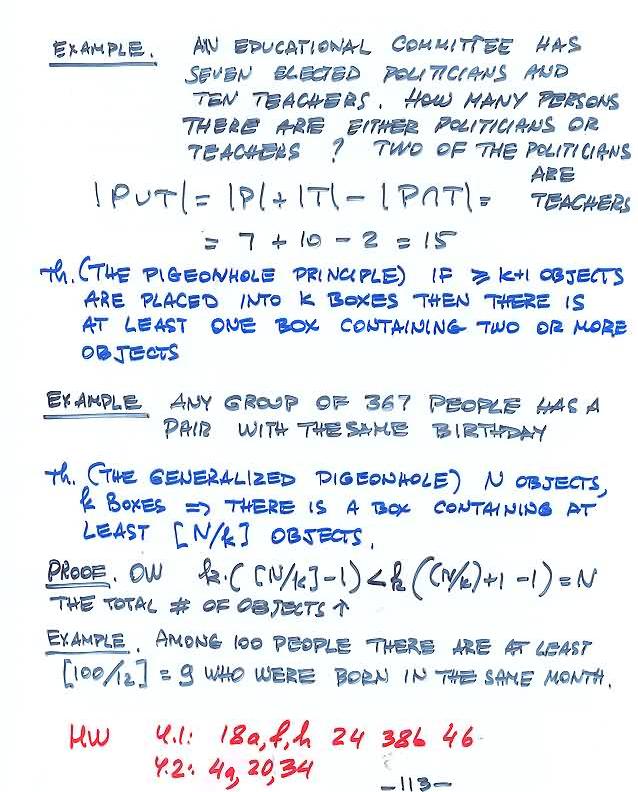 EXAMPLE. AN EDUCATIONAL COMMITTEE HAS
SEVEN ELECTED POLITICIANS AND
TEN TEACHERS. HOW MANY PERSONS
THERE ARE EITHER POLITICIANS OR
TEACHERS ? TWO OF THE POLITICIANS
ARE
TEACHERS
|P∪T| = |P| + |T| - |P∩T| =
= 7 + 10 - 2 = 15
Th. (THE PIGEONHOLE PRINCIPLE) IF ≥ k+1 OBJECTS
ARE PLACED INTO k BOXES THEN THERE IS
AT LEAST ONE BOX CONTAINING TWO OR MORE
OBJECTS
EXAMPLE ANY GROUP OF 367 PEOPLE HAS A
PAIR WITH THE SAME BIRTHDAY
Th. (THE GENERALIZED PIGEONHOLE) N OBJECTS,
k BOXES => THERE IS A BOX CONTAINING AT
LEAST ⌈N/k⌉ OBJECTS.
PROOF. OW k·(⌈N/k⌉-1) < k((N/k)+1-1) = N
THE TOTAL # OF OBJECTS ↑
EXAMPLE. AMONG 100 PEOPLE THERE ARE AT LEAST
⌈100/12⌉ = 9 WHO WERE BORN IN THE SAME MONTH.
HW 4.1: 18a,f,h 24 38b 46
4.2: 4a, 20, 34
-113-